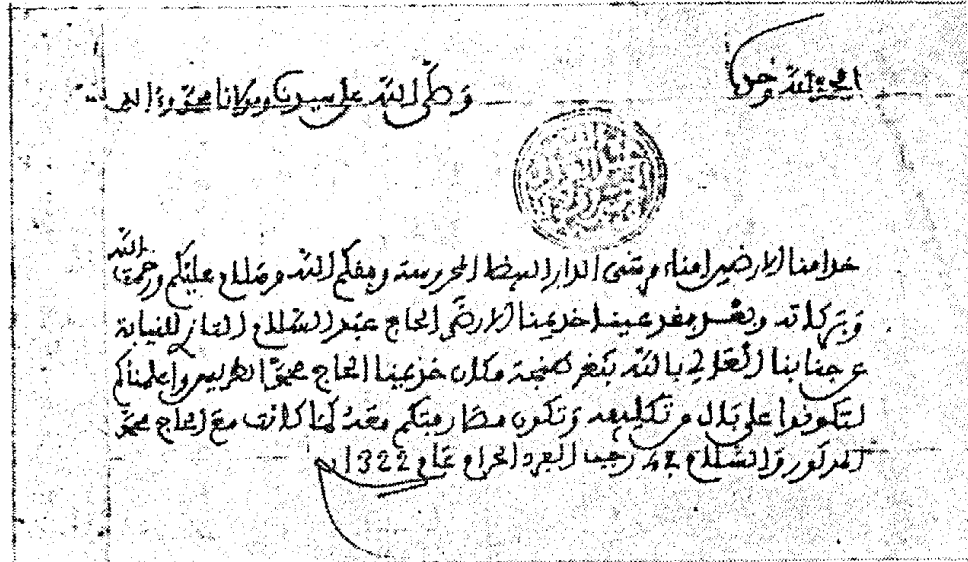 الحمد لله وحده
وصلى الله على سيدنا ومولانا محمد وءاله
خدامنا الارضين امناء مرسى الدار البيضاء المحروسة وفقكم الله وسلام عليكم ورحمت الله
وبركاته وبعد فقد عينا خديمنا الارضى الحاج عبد السلام التازي للنيابة
عن جنابنا العالي بالله بثغر طنجة مكان خديمنا الحاج محمد الطريس وأعلمناكم
لتكونوا على بال من تكليفه وتكون مخاطبتكم معه كما كانت مع الحاج محمد
المذكور والسلام في رجب الفرد الحرام عام 1322